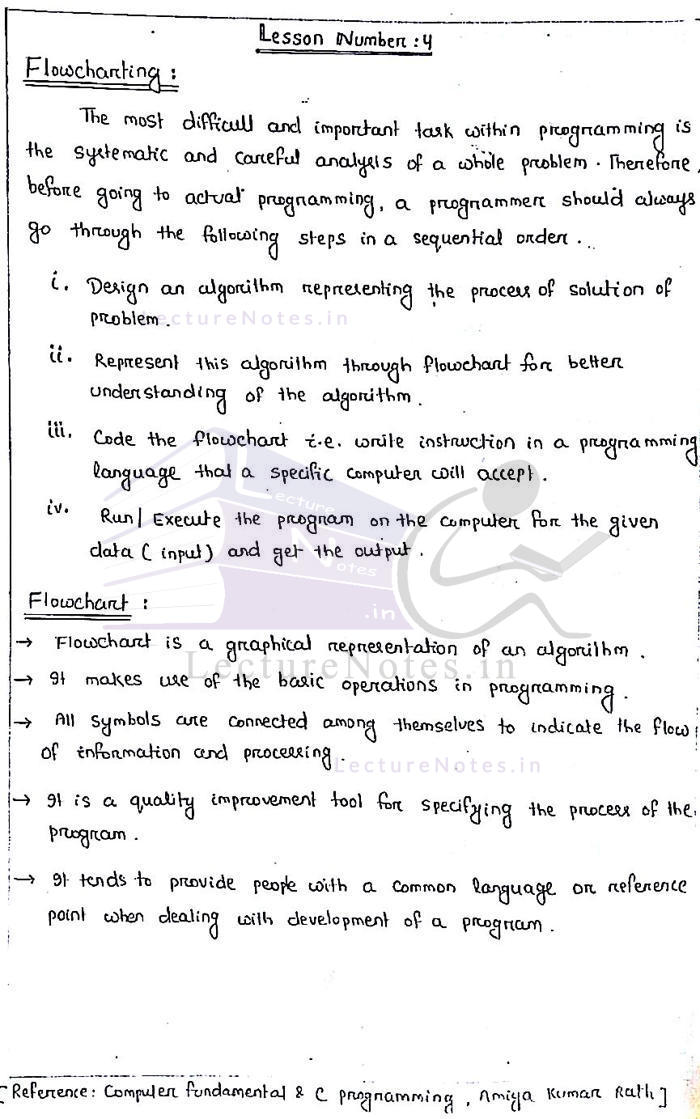 Lesson Number : 4
Flowcharting :
The most difficult and important task within programming is
the systematic and careful analysis of a whole problem. Therefore,
before going to actual programming, a programmer should always
go through the following steps in a sequential order...
i. Design an algorithm representing the process of solution of
problem.
LectureNotes.in
ii. Represent this algorithm through flowchart for better
understanding of the algorithm.
iii. Code the flowchart i.e. write instruction in a programming
language that a specific computer will accept.
Lecture
iv. Run/ Execute the program on the computer for the given
data (input) and get the output.
Notes
.in
Flowchart :
→ Flowchart is a graphical representation of an algorithm.
LectureNotes.in
→ It makes use of the basic operations in programming.
→ All symbols are connected among themselves to indicate the flow
of information and processing.
LectureNotes.in
→ It is a quality improvement tool for specifying the process of the
program.
→ It tends to provide people with a common language or reference
point when dealing with development of a program.
[Reference: Computer fundamental & C programming, Amiya Kumar Rath]